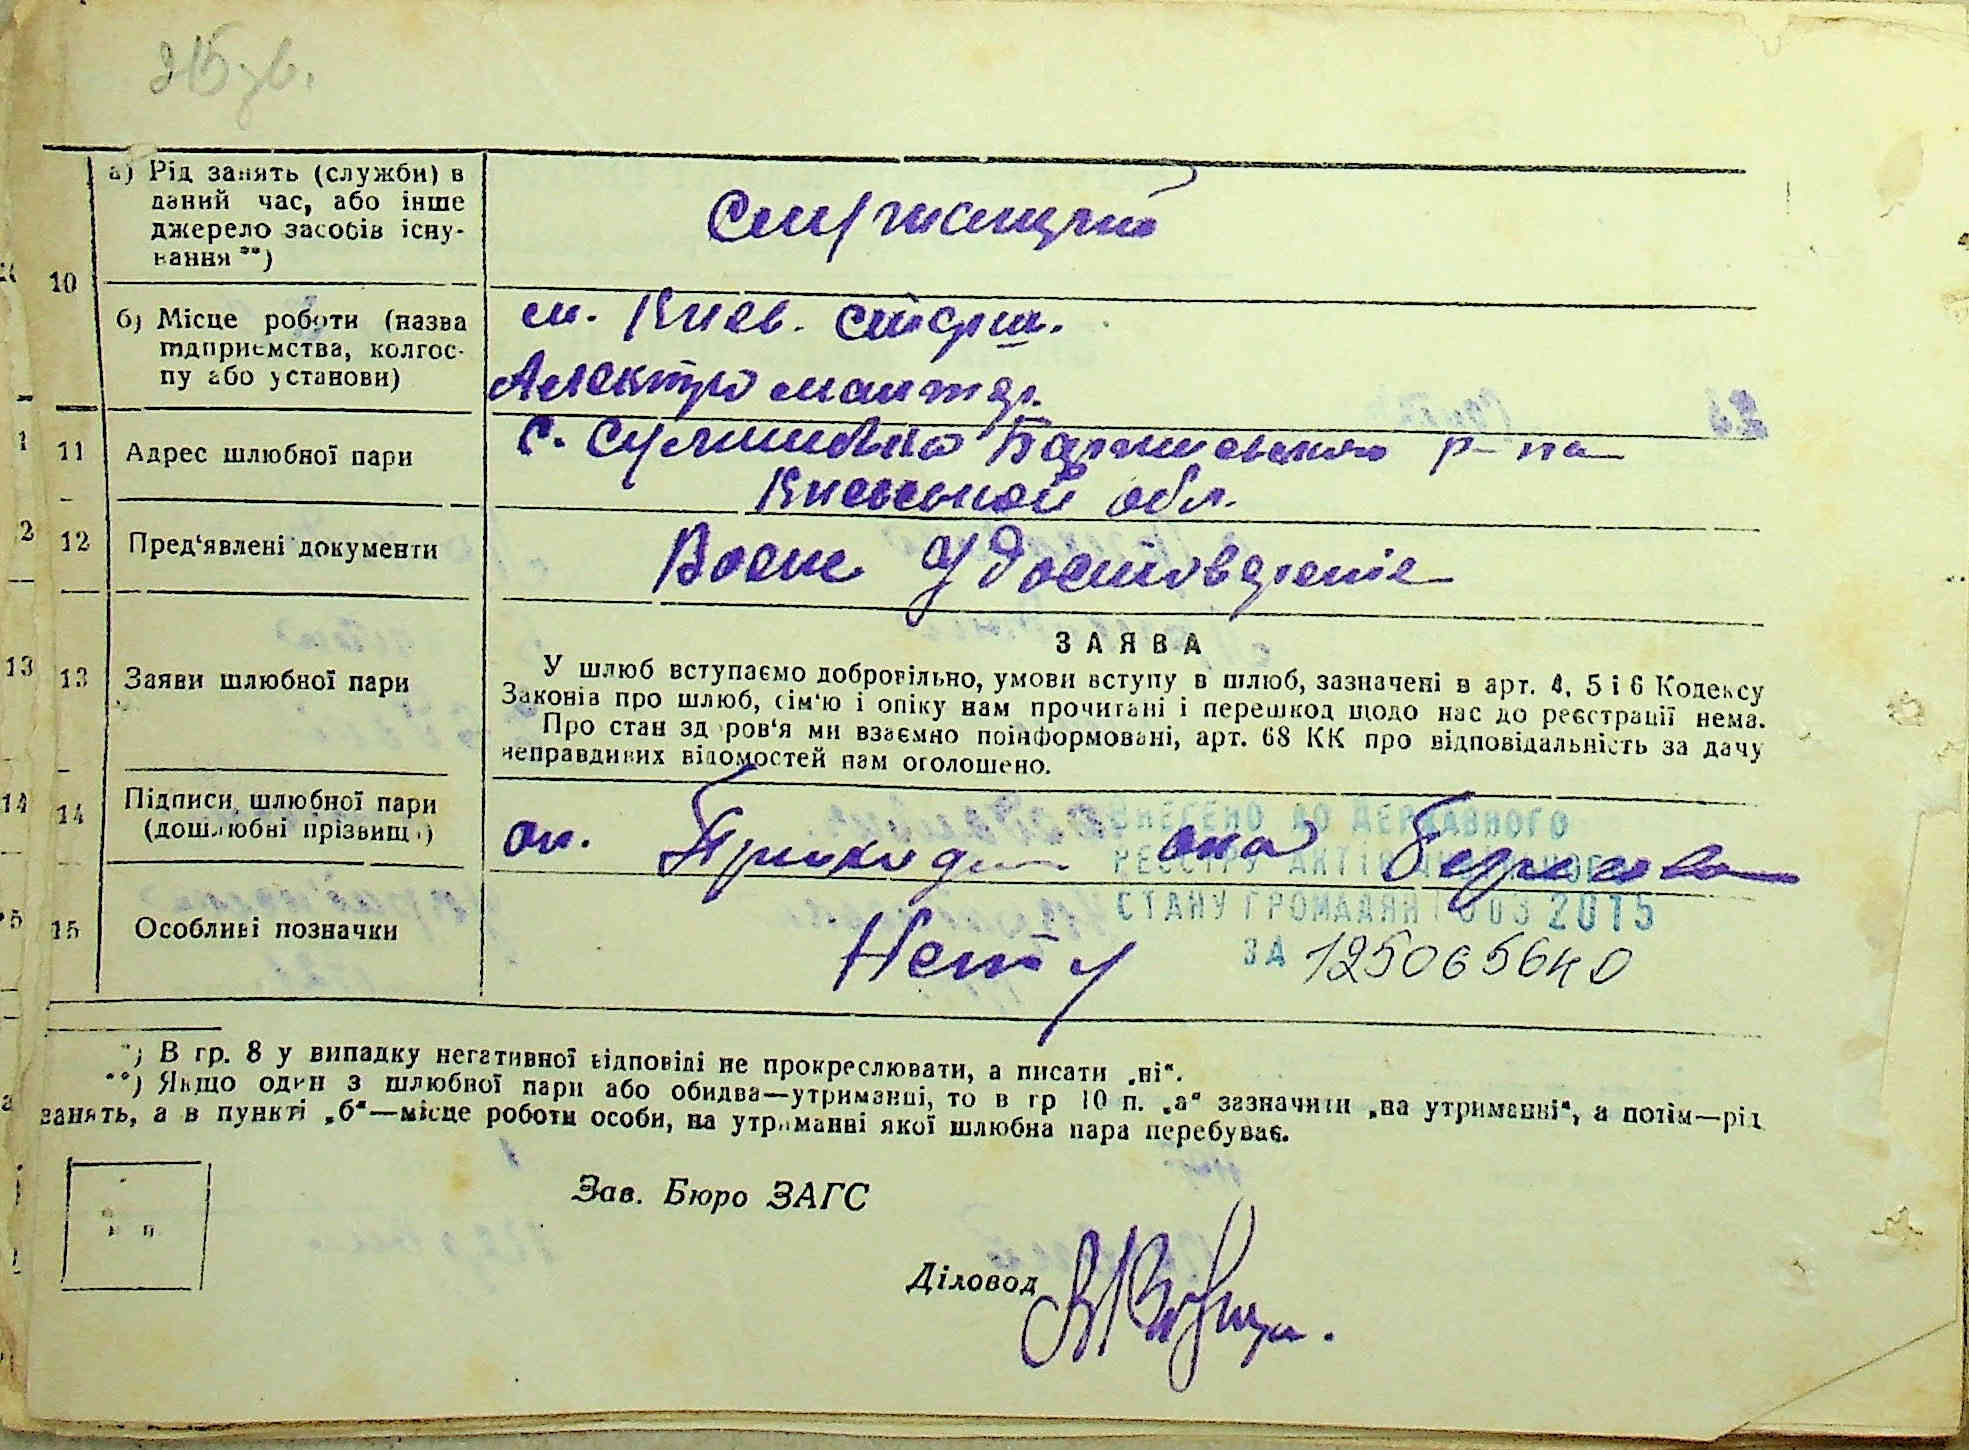 а) Рід занять (служби) в
даний час, або інше
джерело засобів існу-
вання **)
Служащий
10
б) Місце роботи (назва
підприємства, колгос-
пу або установи)
м. Киев. старш.
Електромонтер.
11 Адрес шлюбної пари
с. Сулимовка Баришевского р-на
Киевской обл.
12 Пред'явлені документи
Воен Удостоверение
13 Заяви шлюбної пари
ЗАЯВА
У шлюб вступаємо добровільно, умови вступу в шлюб, зазначені в арт. 4, 5 і 6 Кодексу
Законів про шлюб, сім'ю і опіку нам прочитані і перешкод щодо нас до реєстрації нема.
Про стан здоров'я ми взаємно поінформовані, арт. 68 КК про відповідальність за дачу
неправдивих відомостей нам оголошено.
14 Підписи шлюбної пари
(дошлюбні прізвища)
он. Приходь она
15 Особливі позначки
Нету
ВНЕСЕНО ДО ДЕРЖАВНОГО
РЕЄСТРУ АКТІВ
СТАНУ ГРОМАДЯН 2015
ЗА
*) В гр. 8 у випадку негативної відповіді не прокреслювати, а писати „ні“.
**) Якщо один з шлюбної пари або обидва—утриманці, то в гр 10 п. „а“ зазначити „на утриманні“, а потім—рід
занять, а в пункті „б“—місце роботи особи, на утриманні якої шлюбна пара перебуває.
Зав. Бюро ЗАГС
Діловод